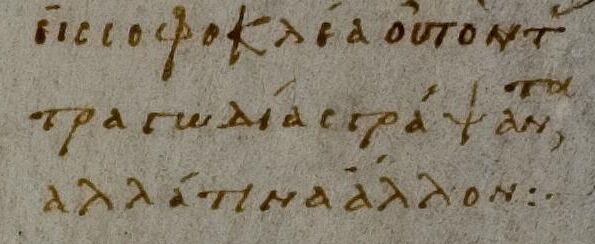 εἰς σοφοκλέα οὐ τὸν τ̀
τραγωδίας γράψαντα,
ἀλλά τινα ἄλλον:·